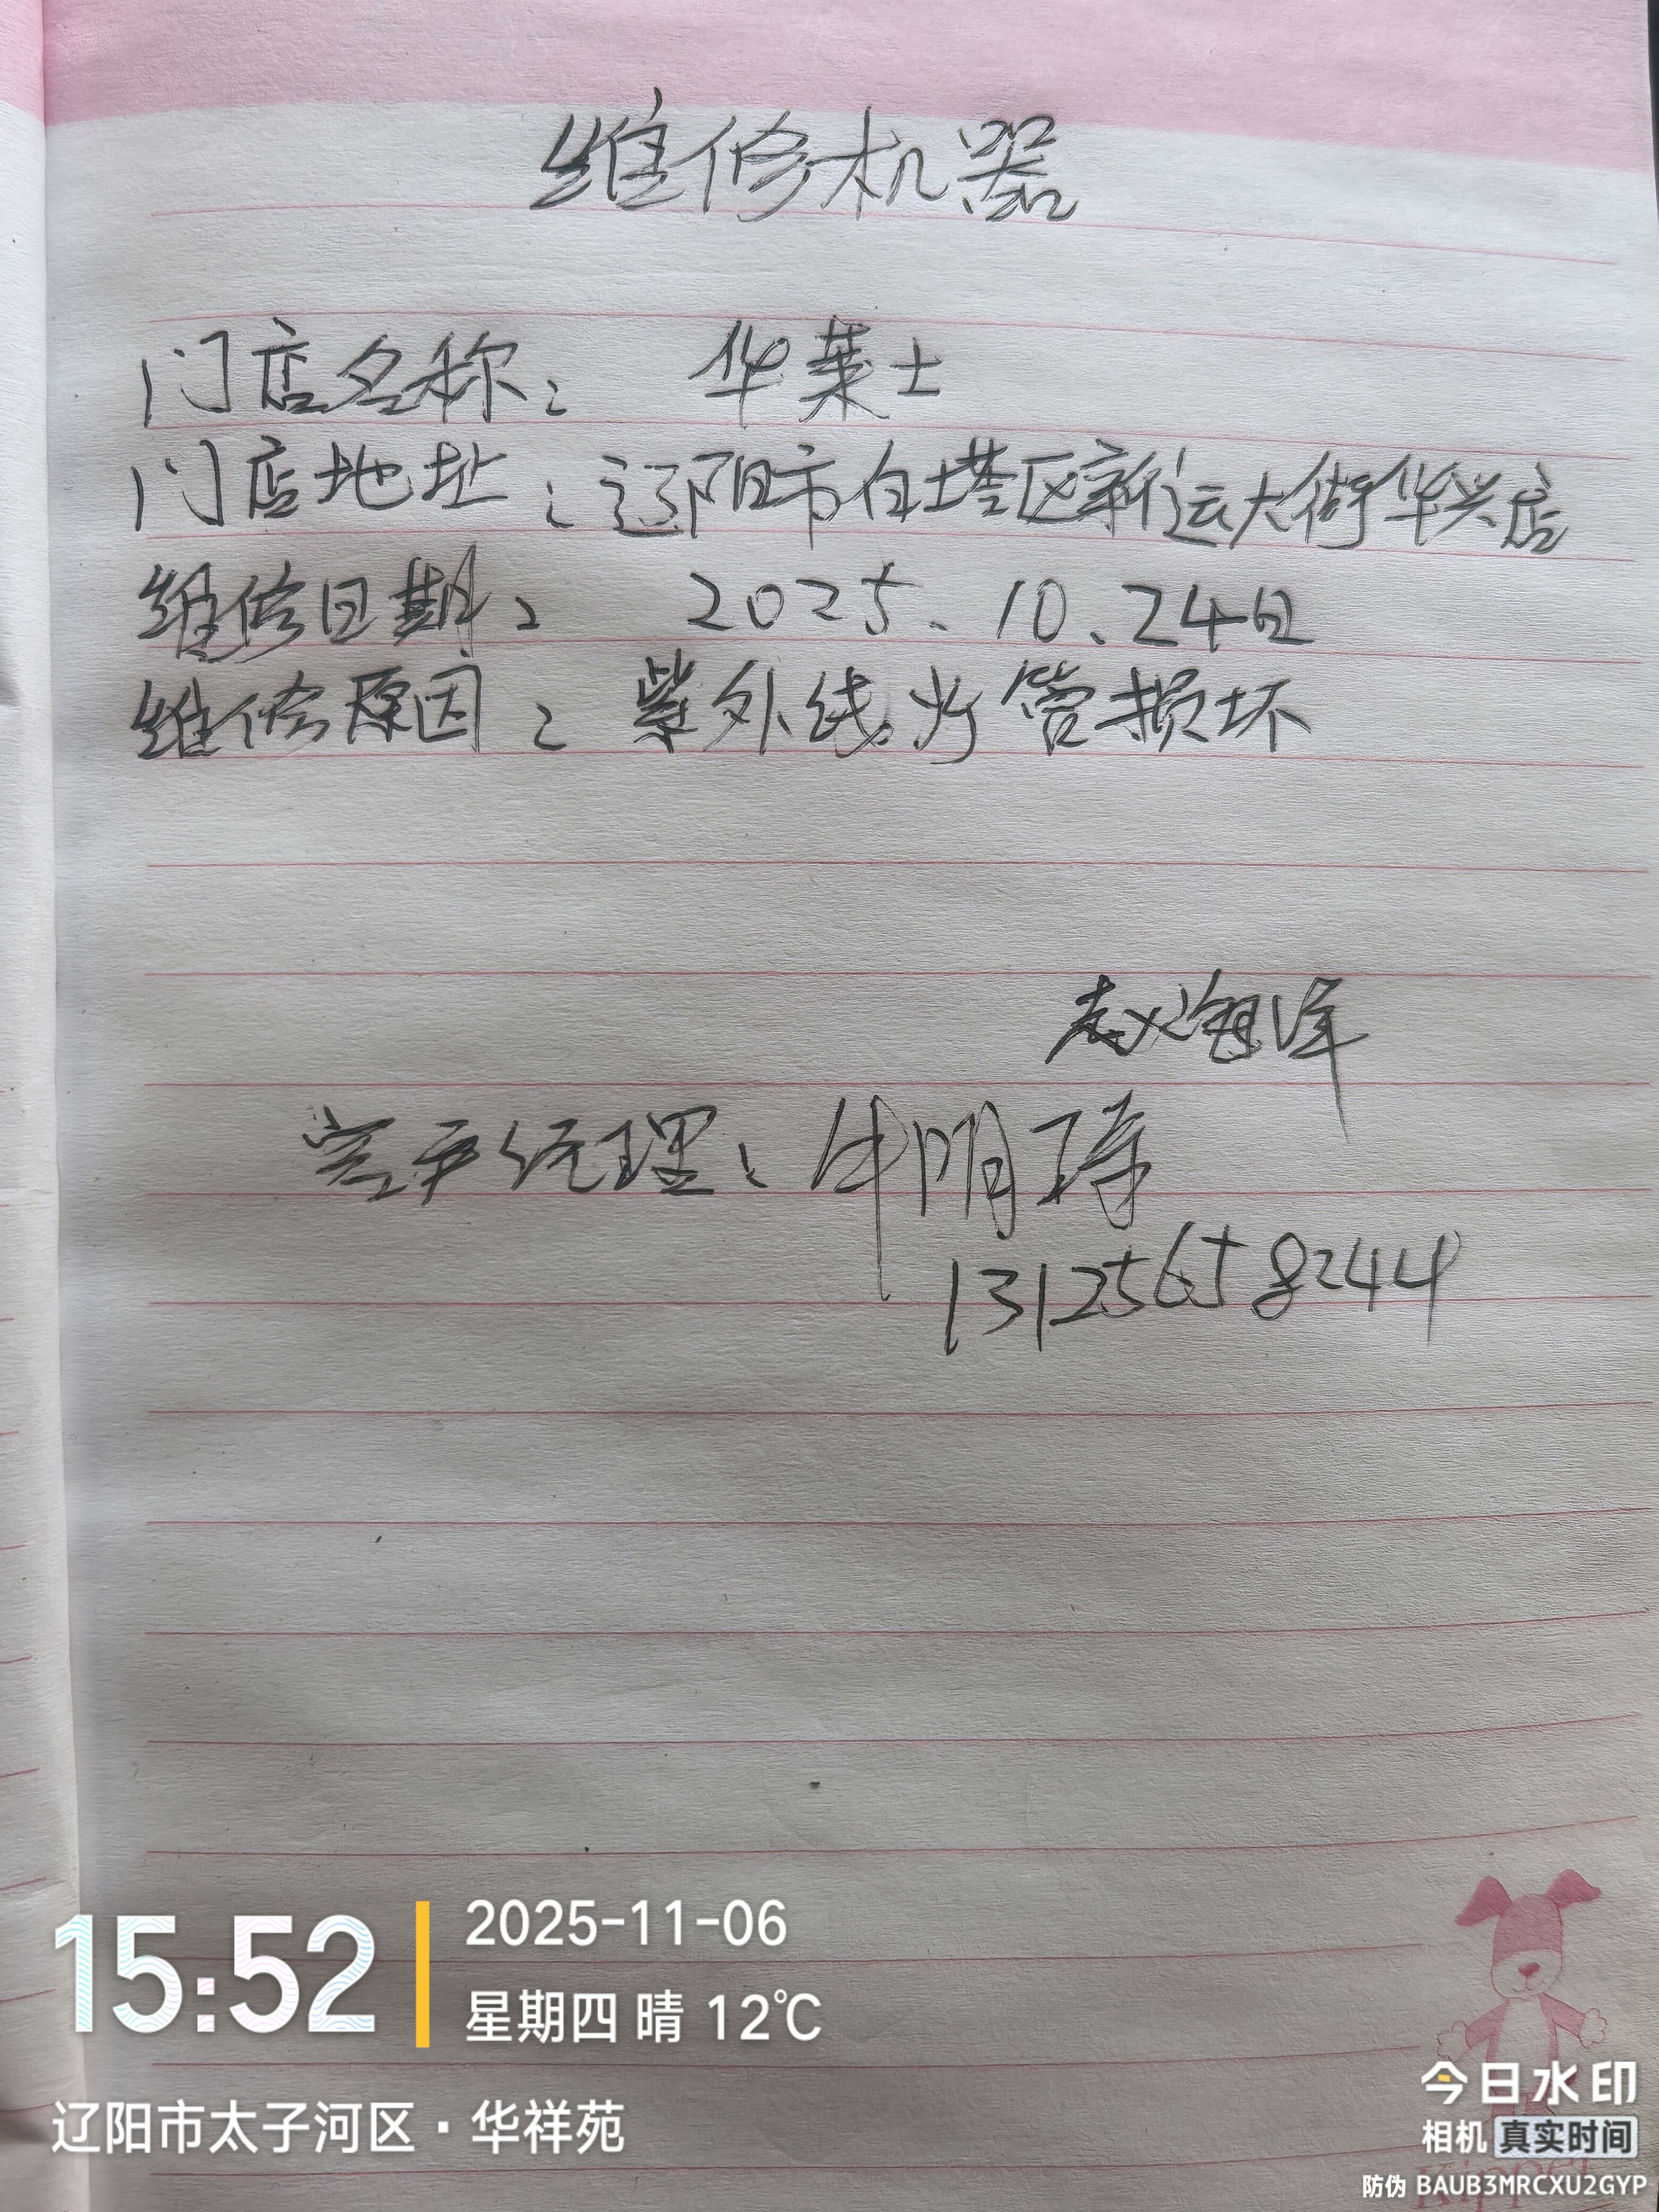 维修机器
门店名称： 华莱士
门店地址：辽阳市白塔区新运大街华兴店
维修日期： 2025.10.24日
维修原因：紫外线灯管损坏
赵海洋
客户经理：牛明琦
13125658244
15:52
2025-11-06
星期四 晴 12℃
辽阳市太子河区·华祥苑
今日水印
相机 真实时间
防伪 BAUB3MRCXU2GYP